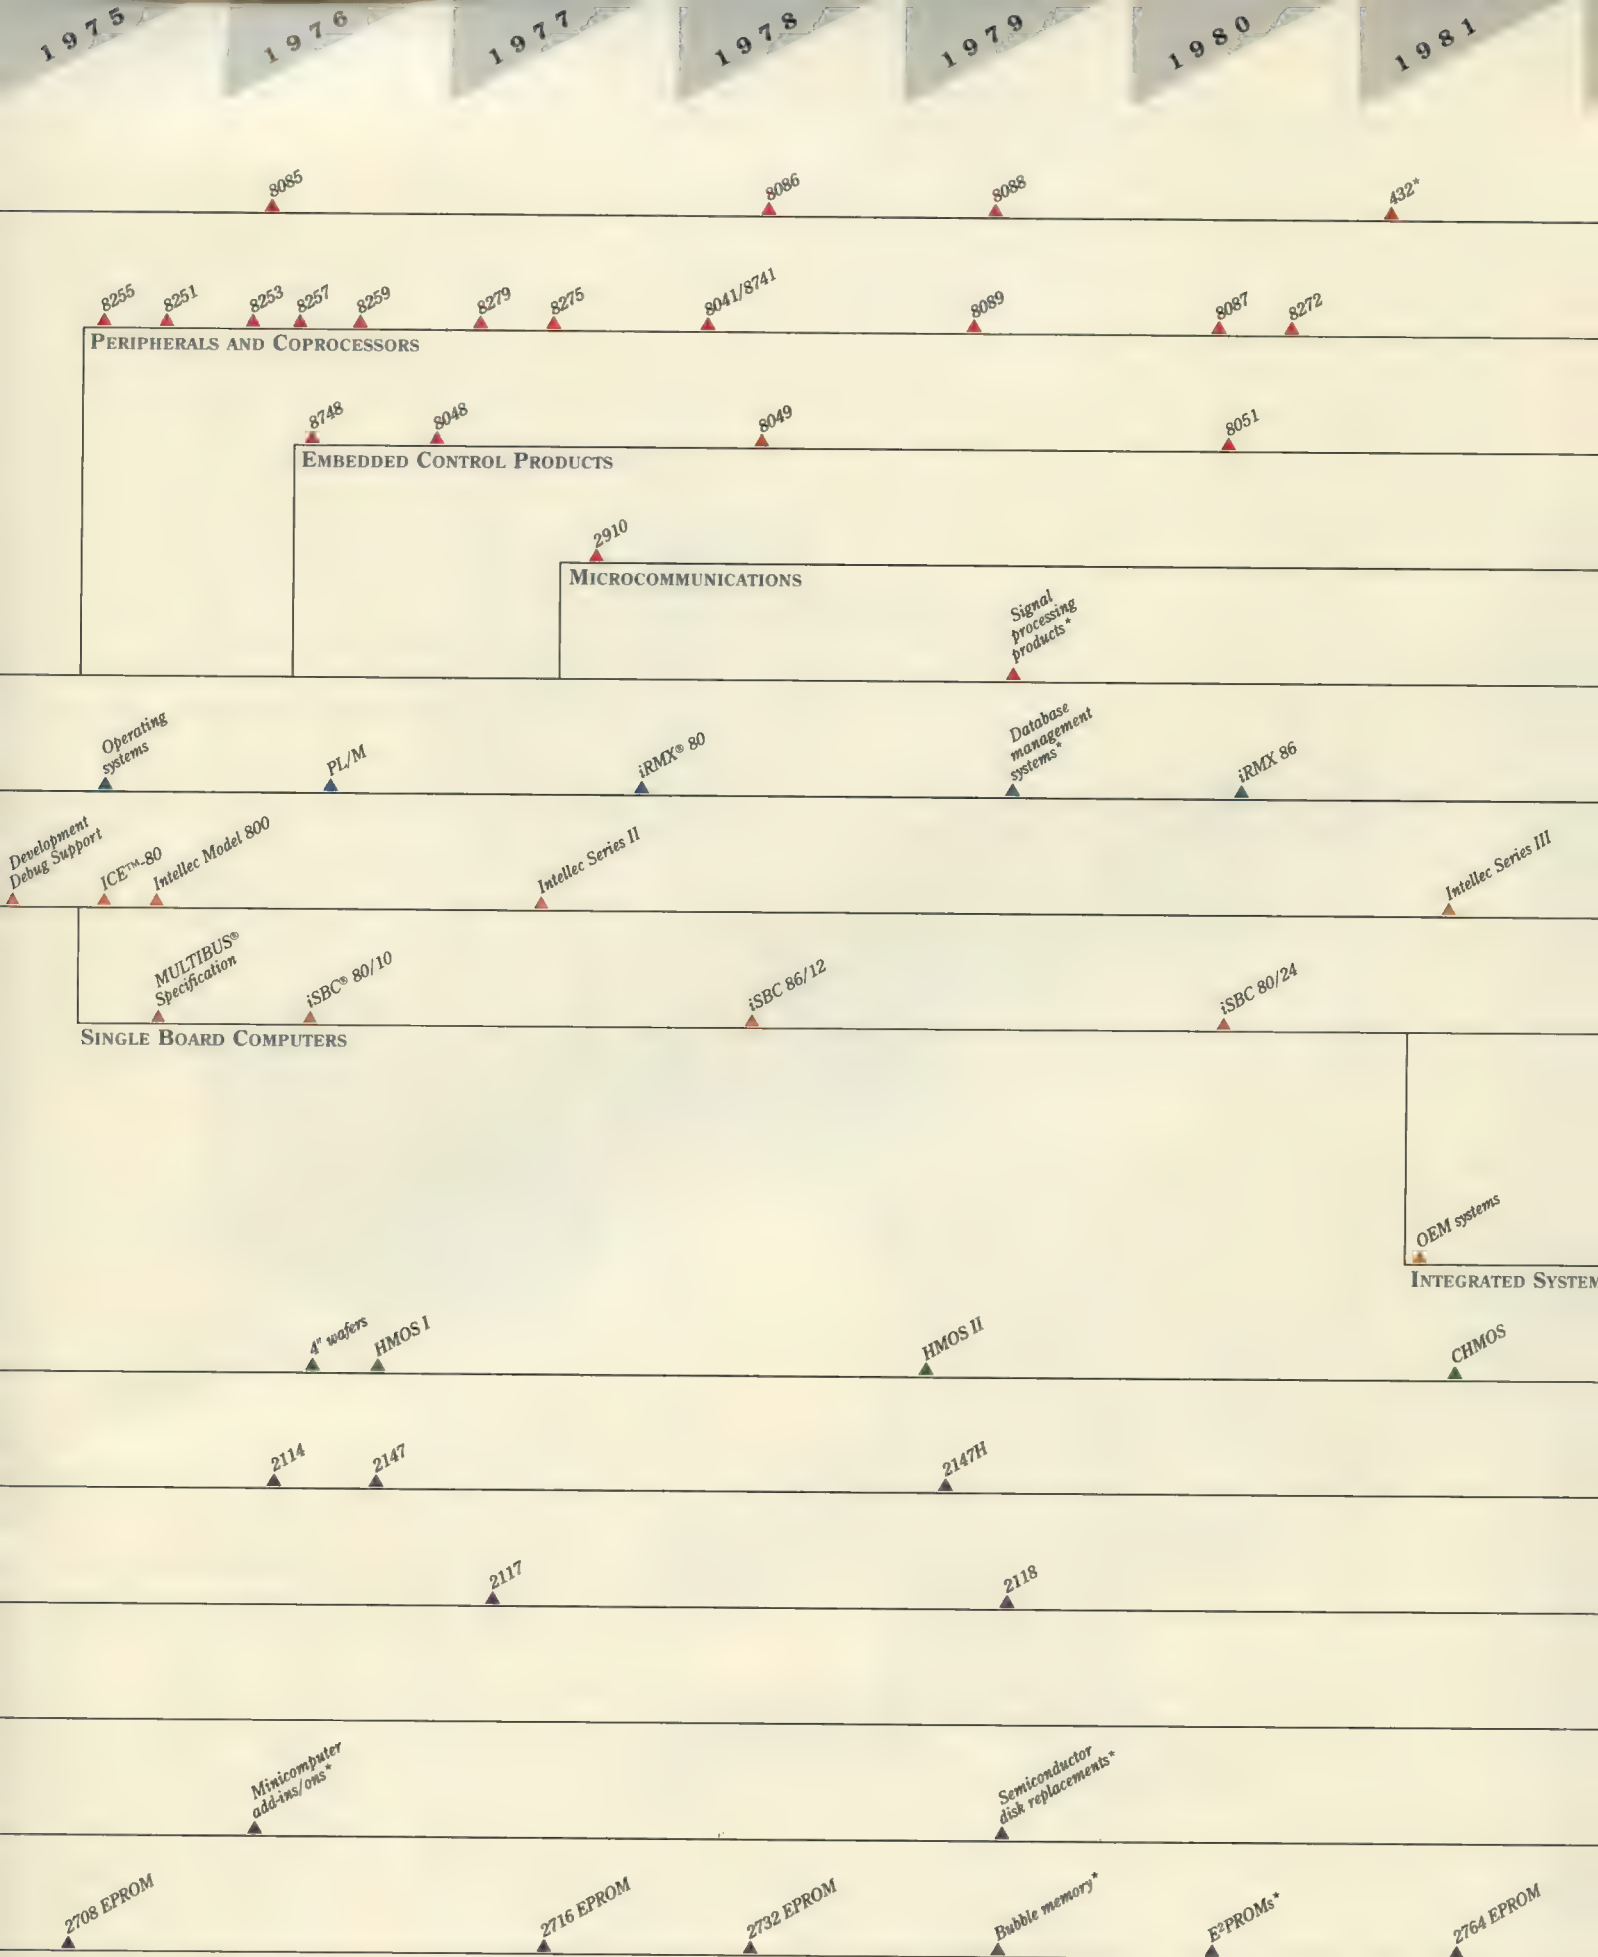 1975
1976
1977
1978
1979
1980
1981
8085
8086
8088
432*
8255
8251
8253
8257
8259
8279
8275
8041/8741
8089
8087
8272
PERIPHERALS AND COPROCESSORS
8748
8048
8049
8051
EMBEDDED CONTROL PRODUCTS
2910
MICROCOMMUNICATIONS
Signal
processing
products*
Operating
systems
PL/M
iRMX® 80
Database
management
systems*
iRMX 86
Development
Debug Support
ICE™-80
Intellec Model 800
Intellec Series II
Intellec Series III
MULTIBUS®
Specification
iSBC® 80/10
iSBC 86/12
iSBC 80/24
SINGLE BOARD COMPUTERS
OEM systems
INTEGRATED SYSTEM
4" wafers
HMOS I
HMOS II
CHMOS
2114
2147
2147H
2117
2118
Minicomputer
add-ins/ons*
Semiconductor
disk replacements*
2708 EPROM
2716 EPROM
2732 EPROM
Bubble memory*
E²PROMs*
2764 EPROM